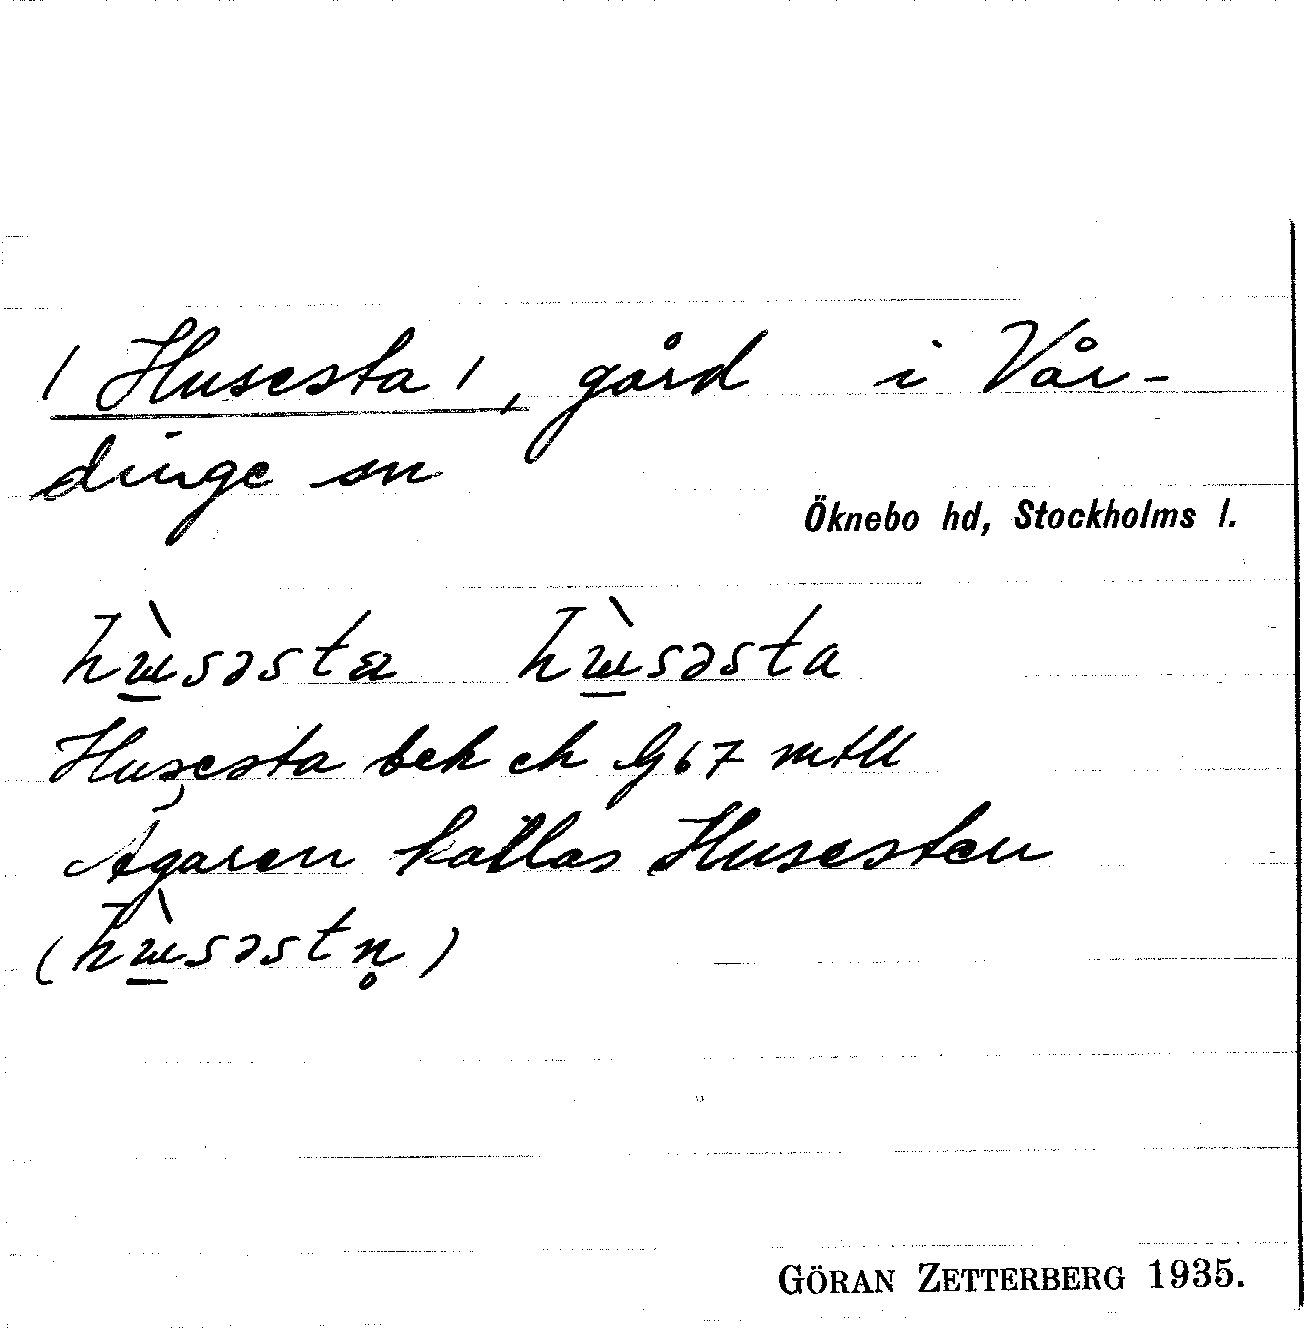 / Husesta /, gård i Vår-
dinge sn
Öknebo hd, Stockholms l.
hɯ̲̀səstæ hɯ̲̀səsta
Husesta bek ek G 67 mtll
Ägaren kallas Husesten
(hɯ̲̀səstn̥)
GÖRAN ZETTERBERG 1935.